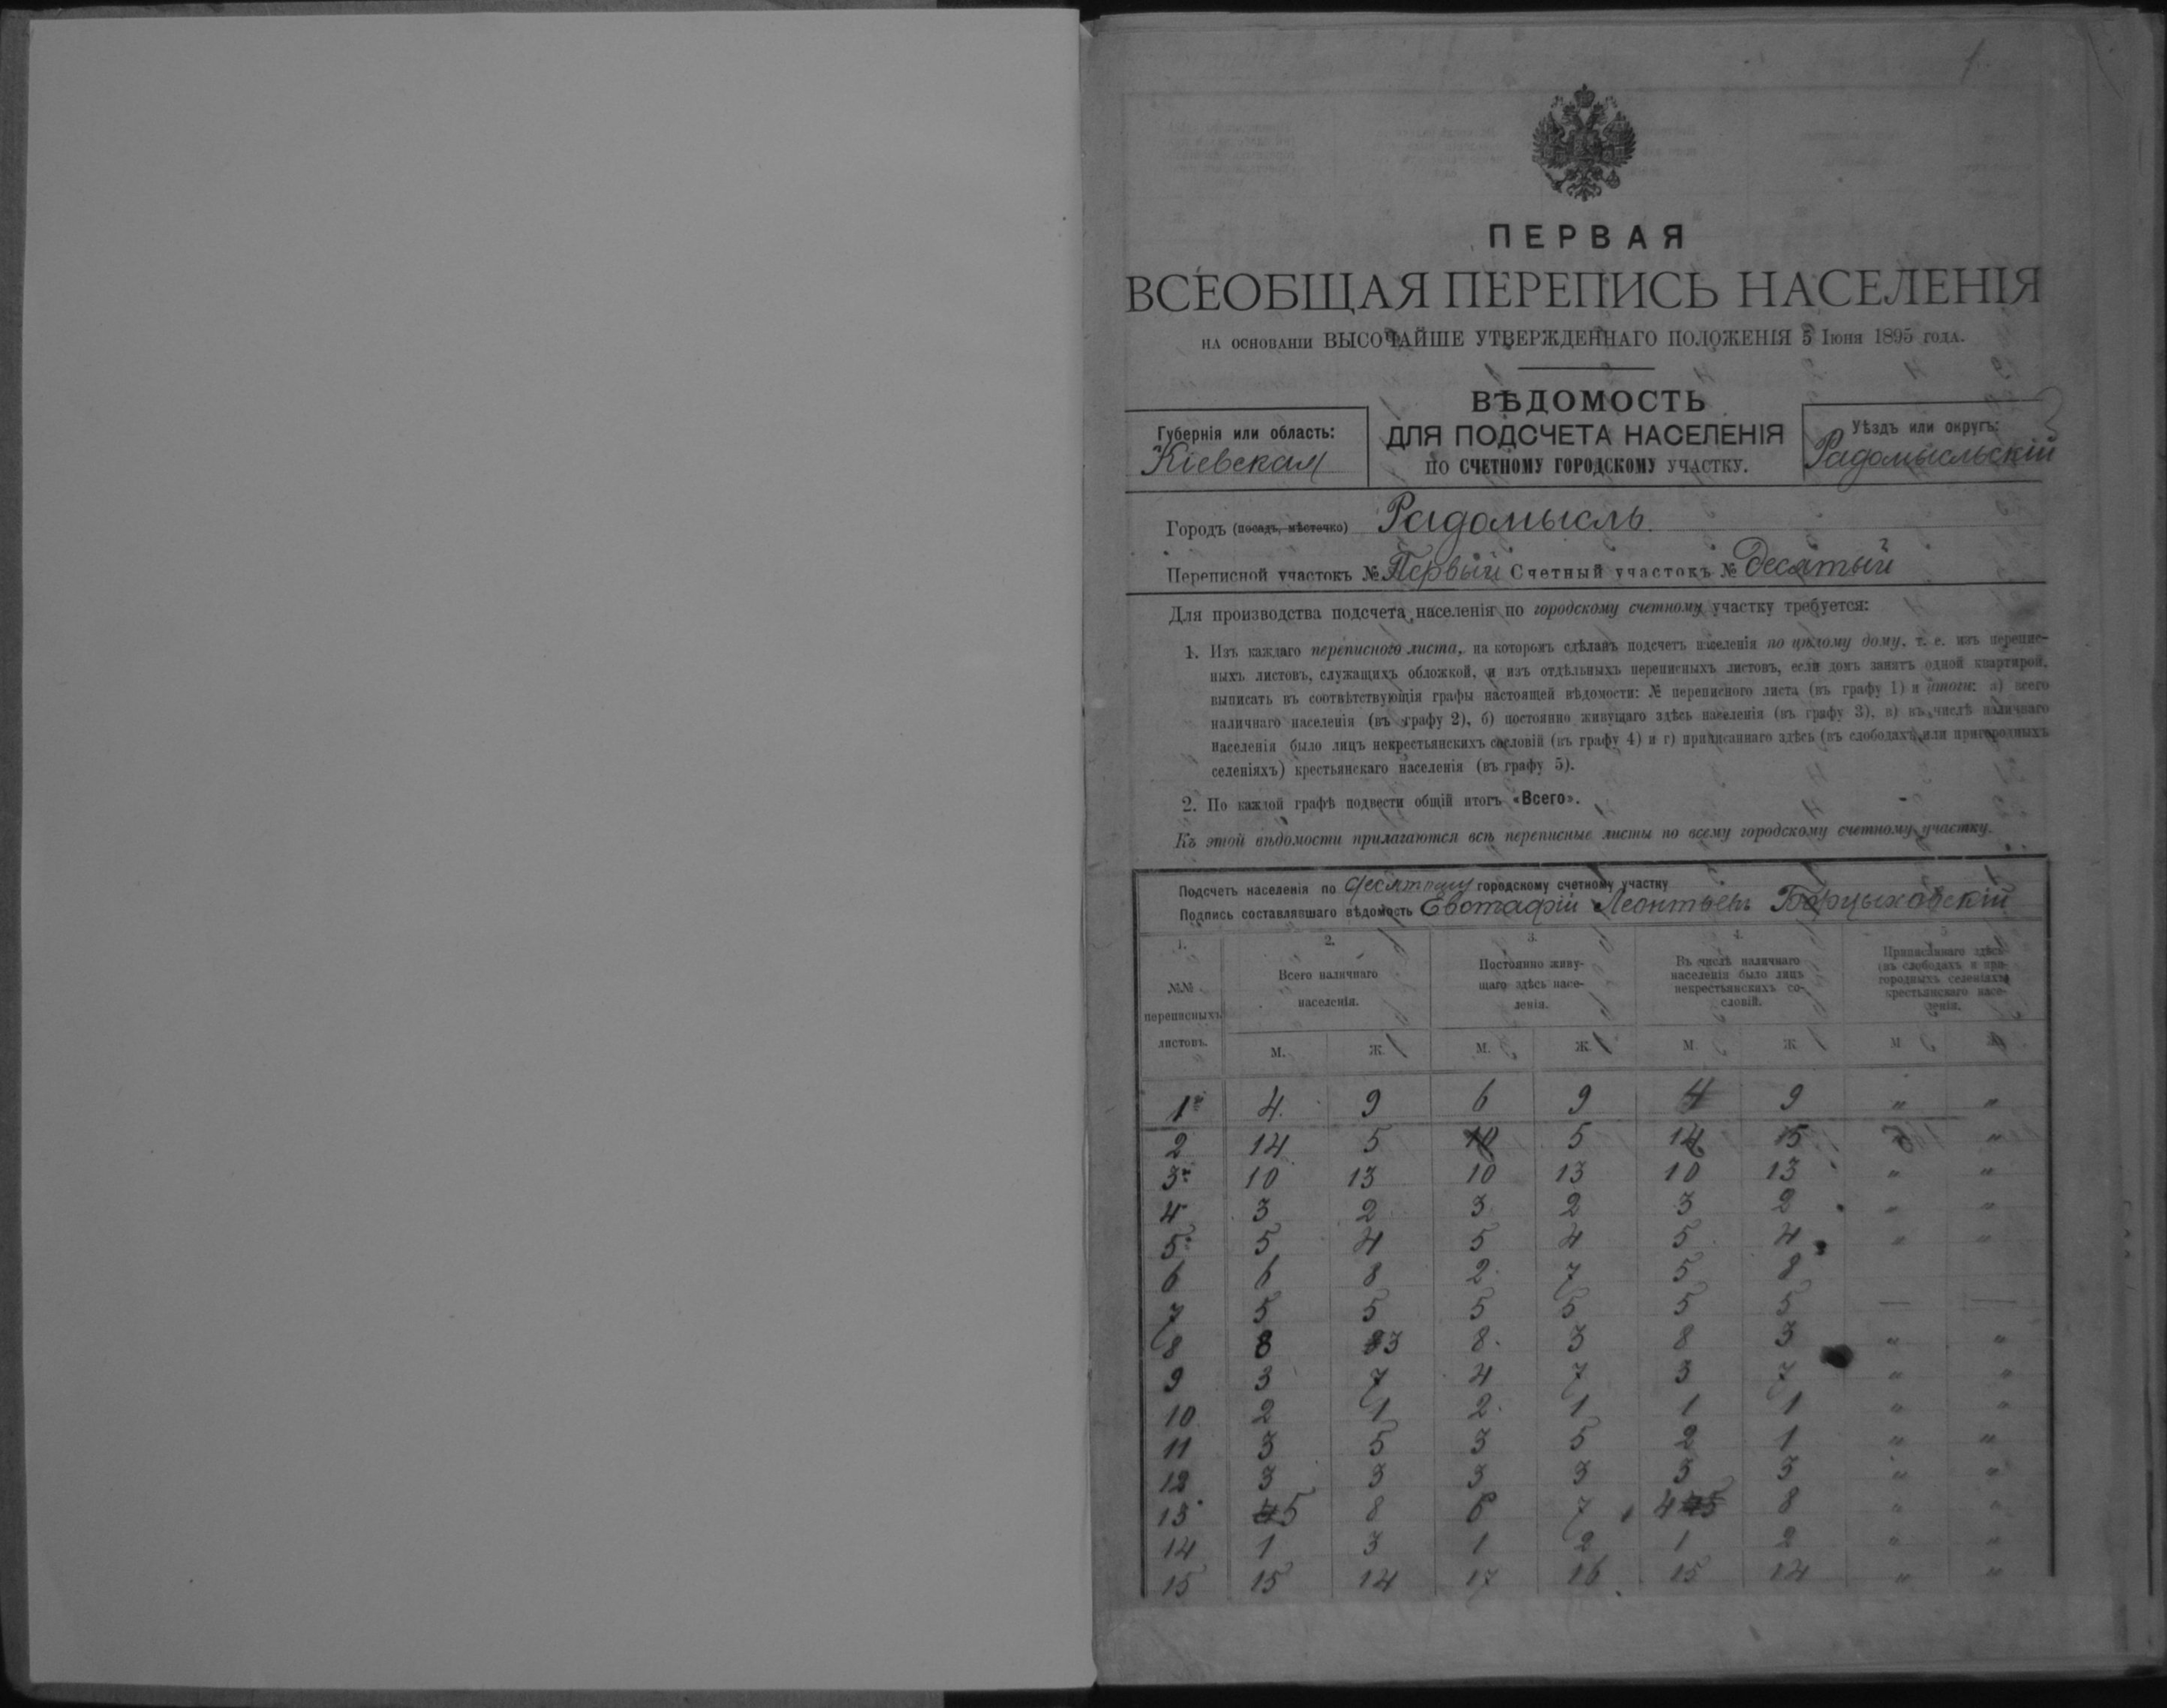 1
ПЕРВАЯ
ВСЕОБЩАЯ ПЕРЕПИСЬ НАСЕЛЕНІЯ
НА ОСНОВАНІИ ВЫСОЧАЙШЕ УТВЕРЖДЕННАГО ПОЛОЖЕНІЯ 5 Іюня 1895 ГОДА.
ВѢДОМОСТЬ
ДЛЯ ПОДСЧЕТА НАСЕЛЕНІЯ
ПО СЧЕТНОМУ ГОРОДСКОМУ УЧАСТКУ.
Губернія или область:
Кіевская
Уѣздъ или округъ:
Радомысльскій
Городъ (посадъ, мѣстечко) Радомысль.
Переписной участокъ № Первый Счетный участокъ № Десятый
Для производства подсчета населенія по городскому счетному участку требуется:
1. Изъ каждаго переписного листа, на которомъ сдѣланъ подсчетъ населенія по цѣлому дому, т. е. изъ перепис-
ныхъ листовъ, служащихъ обложкой, и изъ отдѣльныхъ переписныхъ листовъ, если домъ занятъ одной квартирой,
выписать въ соотвѣтствующія графы настоящей вѣдомости: № переписного листа (въ графу 1) и итоги: а) всего
наличнаго населенія (въ графу 2), б) постоянно живущаго здѣсь населенія (въ графу 3), в) въ числѣ наличнаго
населенія было лицъ некрестьянскихъ сословій (въ графу 4) и г) приписаннаго здѣсь (въ слободахъ или пригородныхъ
селеніяхъ) крестьянскаго населенія (въ графу 5).
2. По каждой графѣ подвести общій итогъ «Всего».
Къ этой вѣдомости прилагаются всѣ переписные листы по всему городскому счетному участку.
Подсчетъ населенія по десятому городскому счетному участку
Подпись составлявшаго вѣдомость Леонтьевъ
1. 2. 3. 4. 5
№№ переписныхъ листовъ.
Всего наличнаго населенія.
Постоянно живу-
щаго здѣсь насе-
ленія.
Въ числѣ наличнаго
населенія было лицъ
некрестьянскихъ со-
словій.
Приписаннаго здѣсь
(въ слободахъ и при-
городныхъ селеніяхъ)
крестьянскаго насе-
ленія.
М. Ж. М. Ж. М Ж М Ж
1 4 9 6 9 4 9 " "
2 14 5 5 14 5 "
3 10 13 10 13 10 13 " "
4 3 2 3 2 3 2 " "
5 5 4 5 4 5 4 " "
6 6 8 2 7 5 8
7 5 5 5 5 5 5 — —
8 8 3 8 3 8 3 " "
9 3 7 4 7 3 7 " "
10 2 1 2 1 1 1 " "
11 3 5 3 5 2 1 " "
12 3 3 3 3 3 3 " "
13 5 8 6 7 4 8 " "
14 1 3 1 2 1 2 " "
15 15 14 17 16 15 14 " "